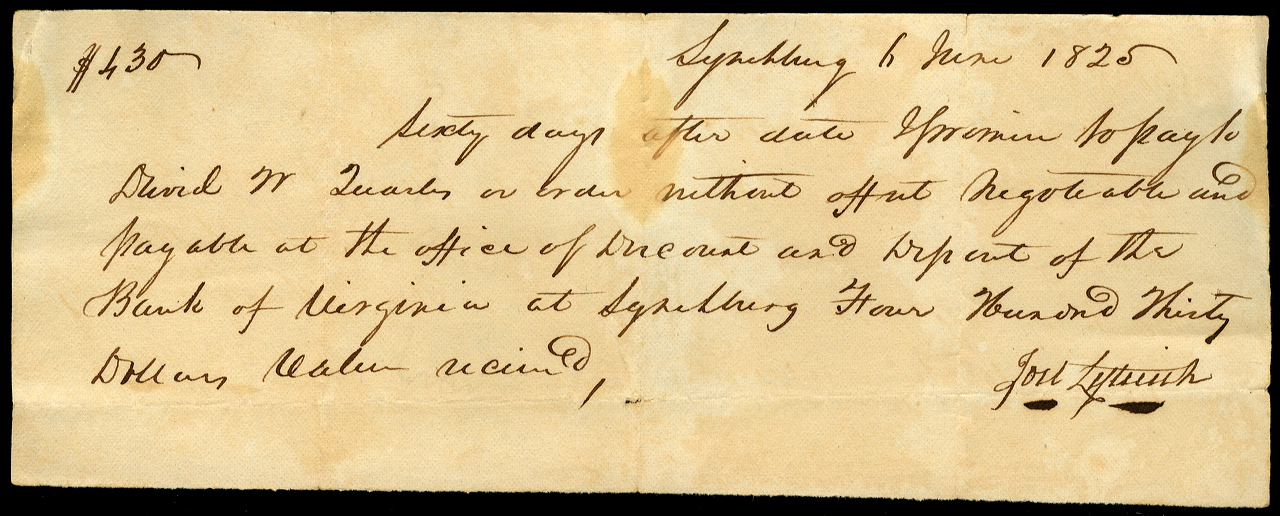 $430 Lynchburg 6 June 1825
Sixty days after date I promise to pay to
David W Quarles or order without offset Negotiable and
payable at the office of Discount and Deposit of the
Bank of Virginia at Lynchburg Four Hundred Thirty
Dollars Value received,